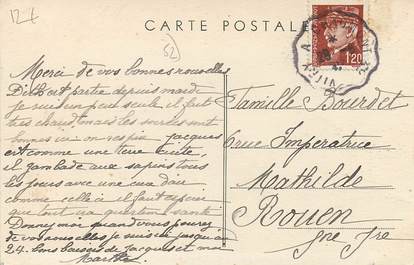 12-4
CARTE POSTALE
52
1.20
Merci de vos bonnes nouvelles
partie depuis mardi
je suis un peu seule il fait
tres chaud mais les soirées sont
bonnes ici on respire. Jacques
est comme une terre cuite,
il gambade aux sapins tous
les jours avec une
comme celle ci il faut
que tout va question santé
Donnez moi quand vous pouvez
de vos nouvelles je suis ici jusqu'au
24. Bons baisers de Jacques et moi
Marthe
Famille Bourdet
6 rue Impératrice
Mathilde
Rouen
Sne Fre